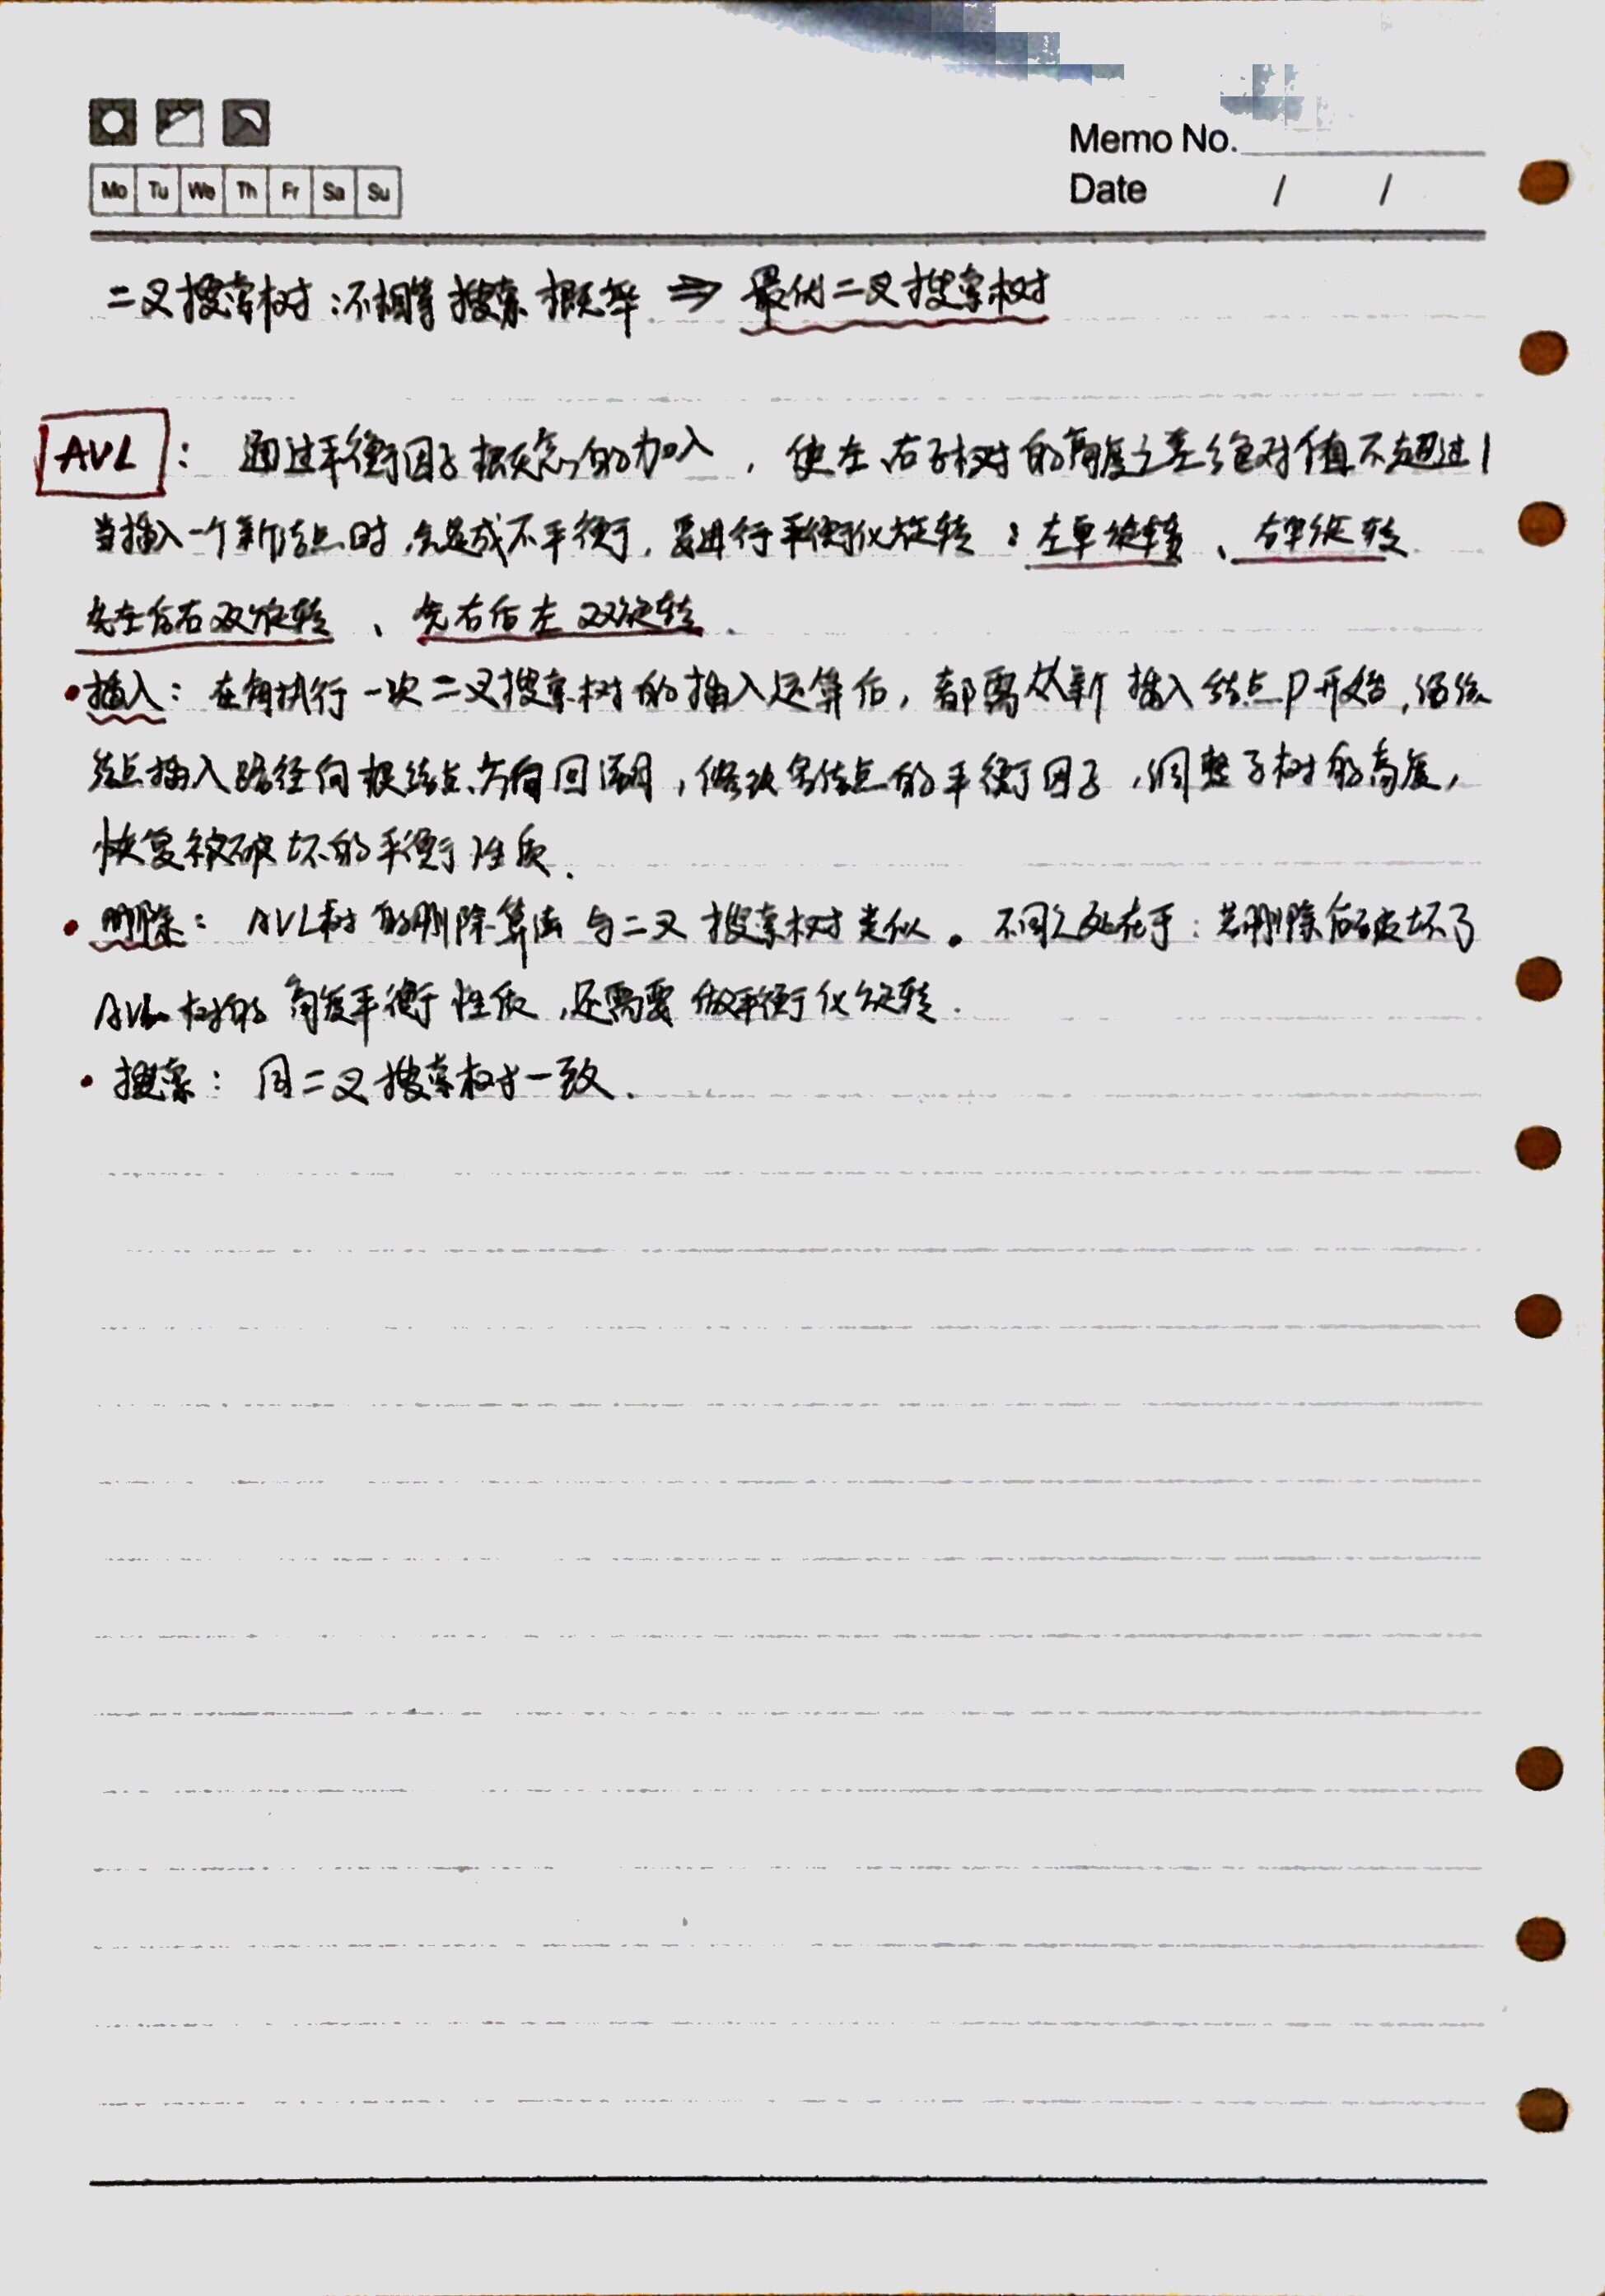 Memo No.
Mo Tu We Th Fr Sa Su
Date / /
二叉搜索树:不相等搜索概率 ⇒ 最优二叉搜索树
AVL: 通过平衡因子概念的加入,使左、右子树的高度之差绝对值不超过1
当插入一个新结点时,会造成不平衡,要进行平衡化旋转:左单旋转、右单旋转
先左后右双旋转、先右后左双旋转.
•插入:在每执行一次二叉搜索树的插入运算后,都需从新插入结点P开始,沿该
结点插入路径向根结点方向回溯,修改各结点的平衡因子,调整子树的高度,
恢复被破坏的平衡性质.
•删除:AVL树的删除算法与二叉搜索树类似。不同之处在于:若删除后破坏了
AVL树的高度平衡性质,还需要做平衡化旋转.
•搜索:同二叉搜索树一致.